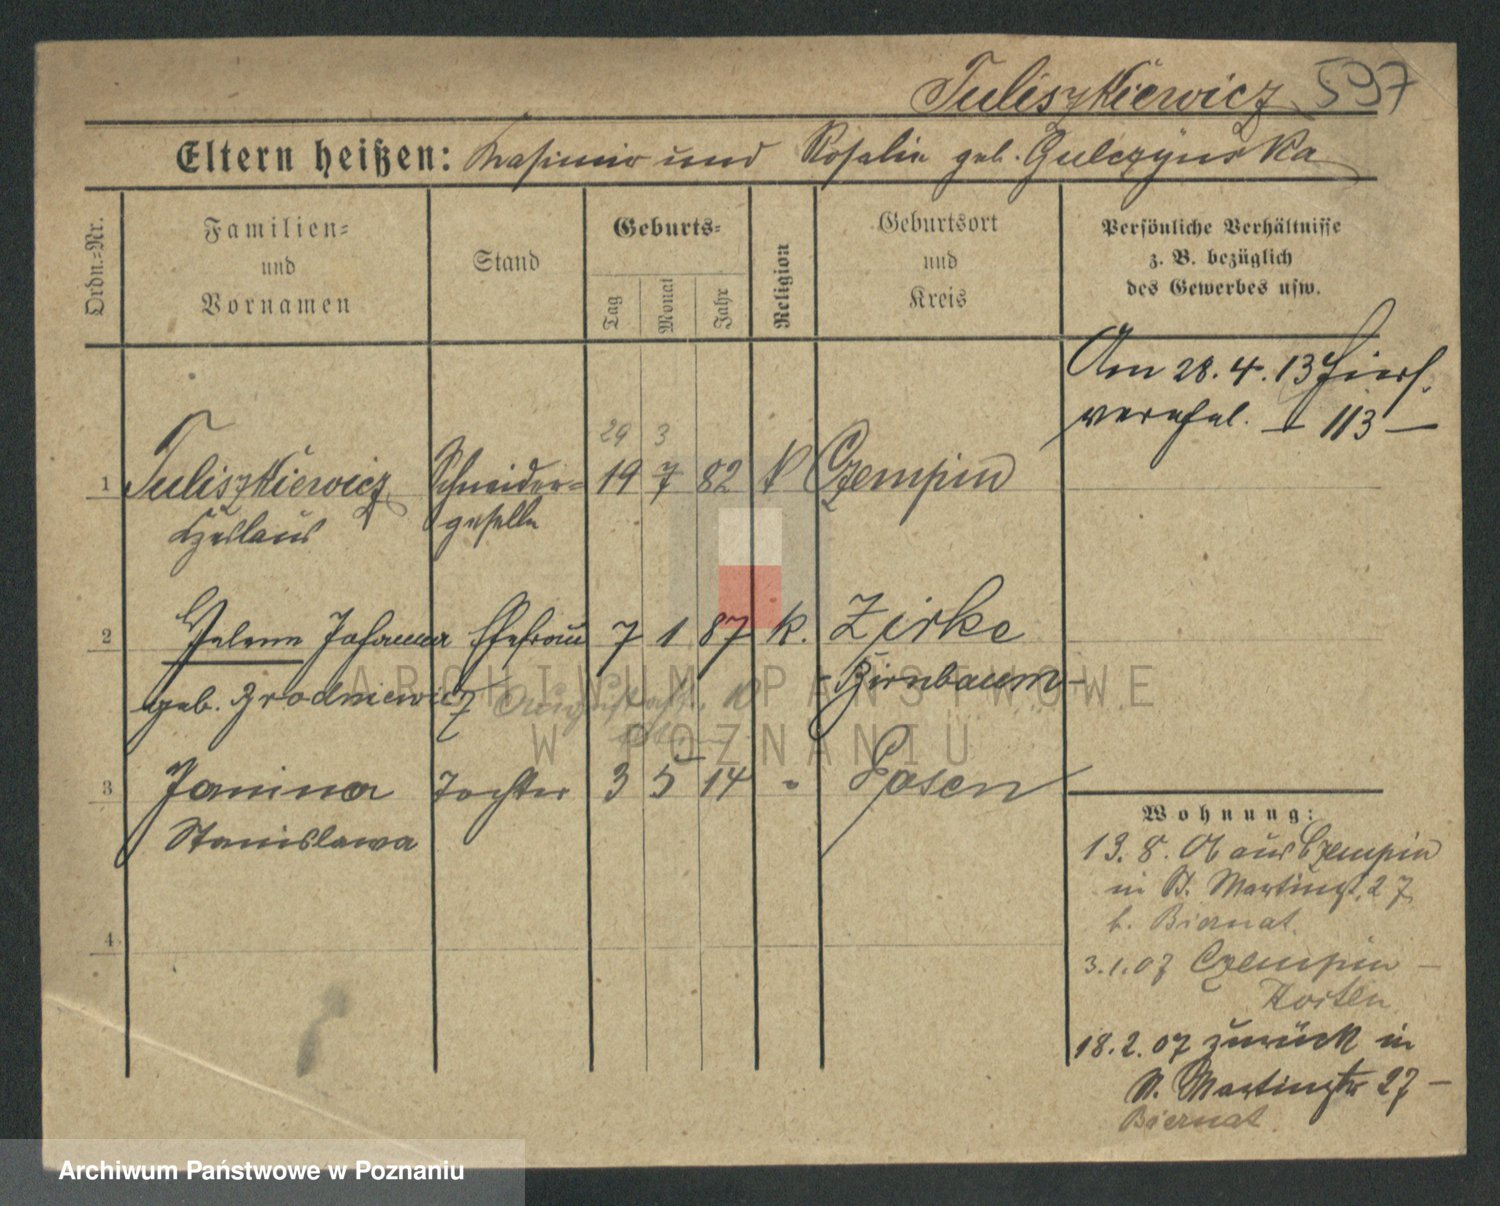 Tuliszkiewicz 597
Eltern heißen: Kasimir und Rosalie geb. Gulczyńska
Ordn.-Nr.
Familien-
und
Vornamen
Stand
Geburts-
Tag
Monat
Jahr
Religion
Geburtsort
und
Kreis
Persönliche Verhältnisse
z. B. bezüglich
des Gewerbes usw.
Am 28. 4. 13 hiers.
verehel. — 113 —
29 3
1 Tuliszkiewicz Schneider- 19 7 82 k Czempin
Czeslaus geselle
2 Helene Johanna Ehefrau 7 1 87 k. Zirke
geb. Brodniewicz - Birnbaum -
3 Janina Tochter 3 5 14 " Posen
Stanislawa
4
Wohnung:
13. 8. 06 aus Czempin
in St. Martinstr. 27
b. Biernat.
3.1.07 Czempin —
Kosten
18.2.07 zurück in
St. Martinstr 27 —
Biernat.
ARCHIWUM PAŃSTWOWE
W POZNANIU
Archiwum Państwowe w Poznaniu